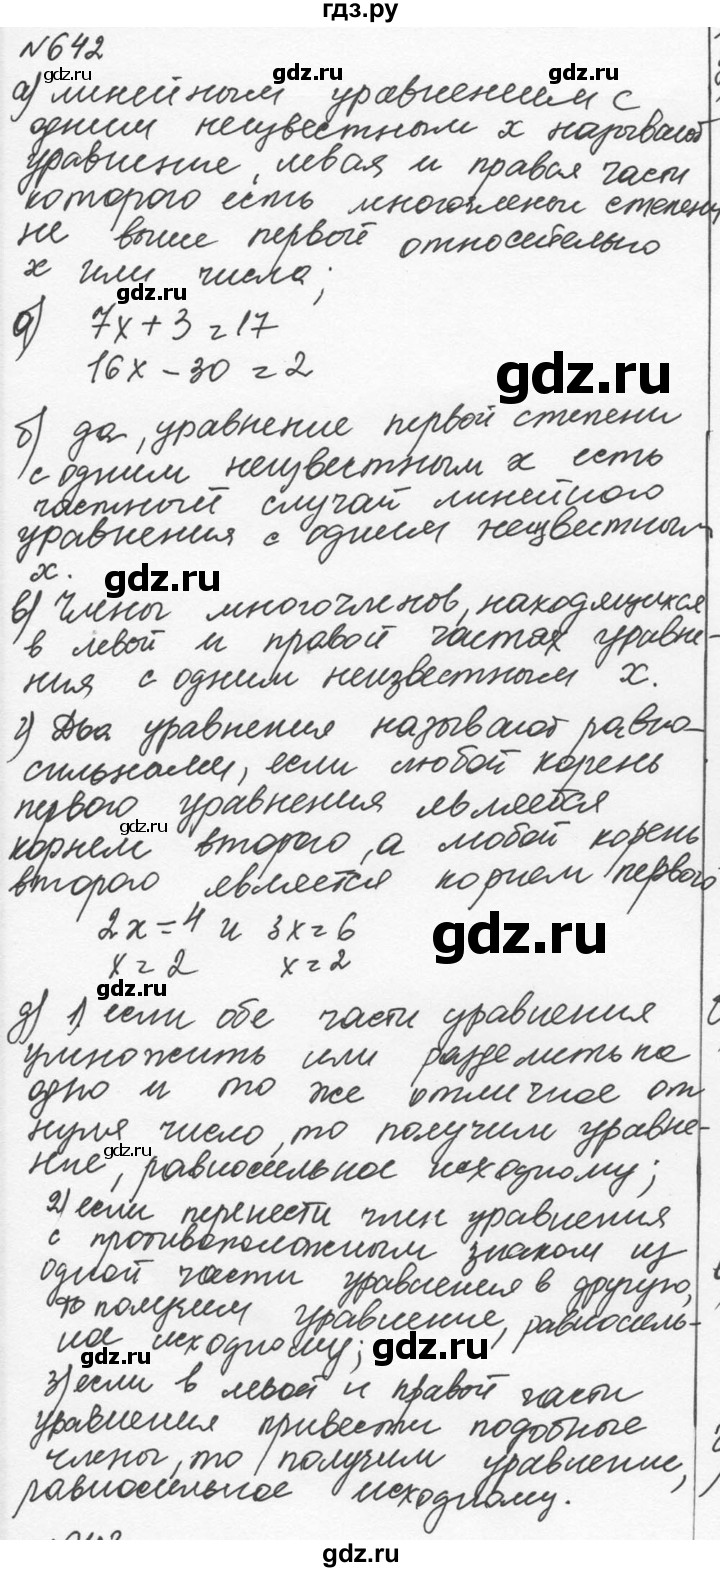 гдз.ру
№642
gdz.ru gdz.ru
а) линейным уравнением с
одним неизвестным х называют
уравнение, левая и правая части
которого есть многочлены степени
не выше первой относительно
х или числа;
gdz.ru
а) 7х + 3 = 17
16х – 30 = 2
gdz.ru
б) да, уравнение первой степени
с одним неизвестным х есть
частный случай линейного
уравнения с одним неизвестным
х.
gdz.ru
в) Члены многочленов, находящихся
в левой и правой частях уравне-
ния с одним неизвестным х.
г) Два уравнения называют равно-
сильными, если любой корень
первого уравнения является
gdz.ru
корнем второго, а любой корень
второго является корнем первого
2х = 4 и 3х = 6
gdz.ru
х = 2 х = 2
gdz.ru
д) 1) если обе части уравнения
умножить или разделить на
одно и то же отличное от
нуля число, то получим уравне-
gdz.ru
ние, равносильное исходному;
2) если перенести член уравнения
с противоположным знаком из
одной части уравнения в другую,
то получим уравнение, равносиль-
ное исходному;
gdz.ru gdz.ru
3) если в левой и правой части
уравнения привести подобные
члены, то получим уравнение,
равносильное исходному.
gdz.ru